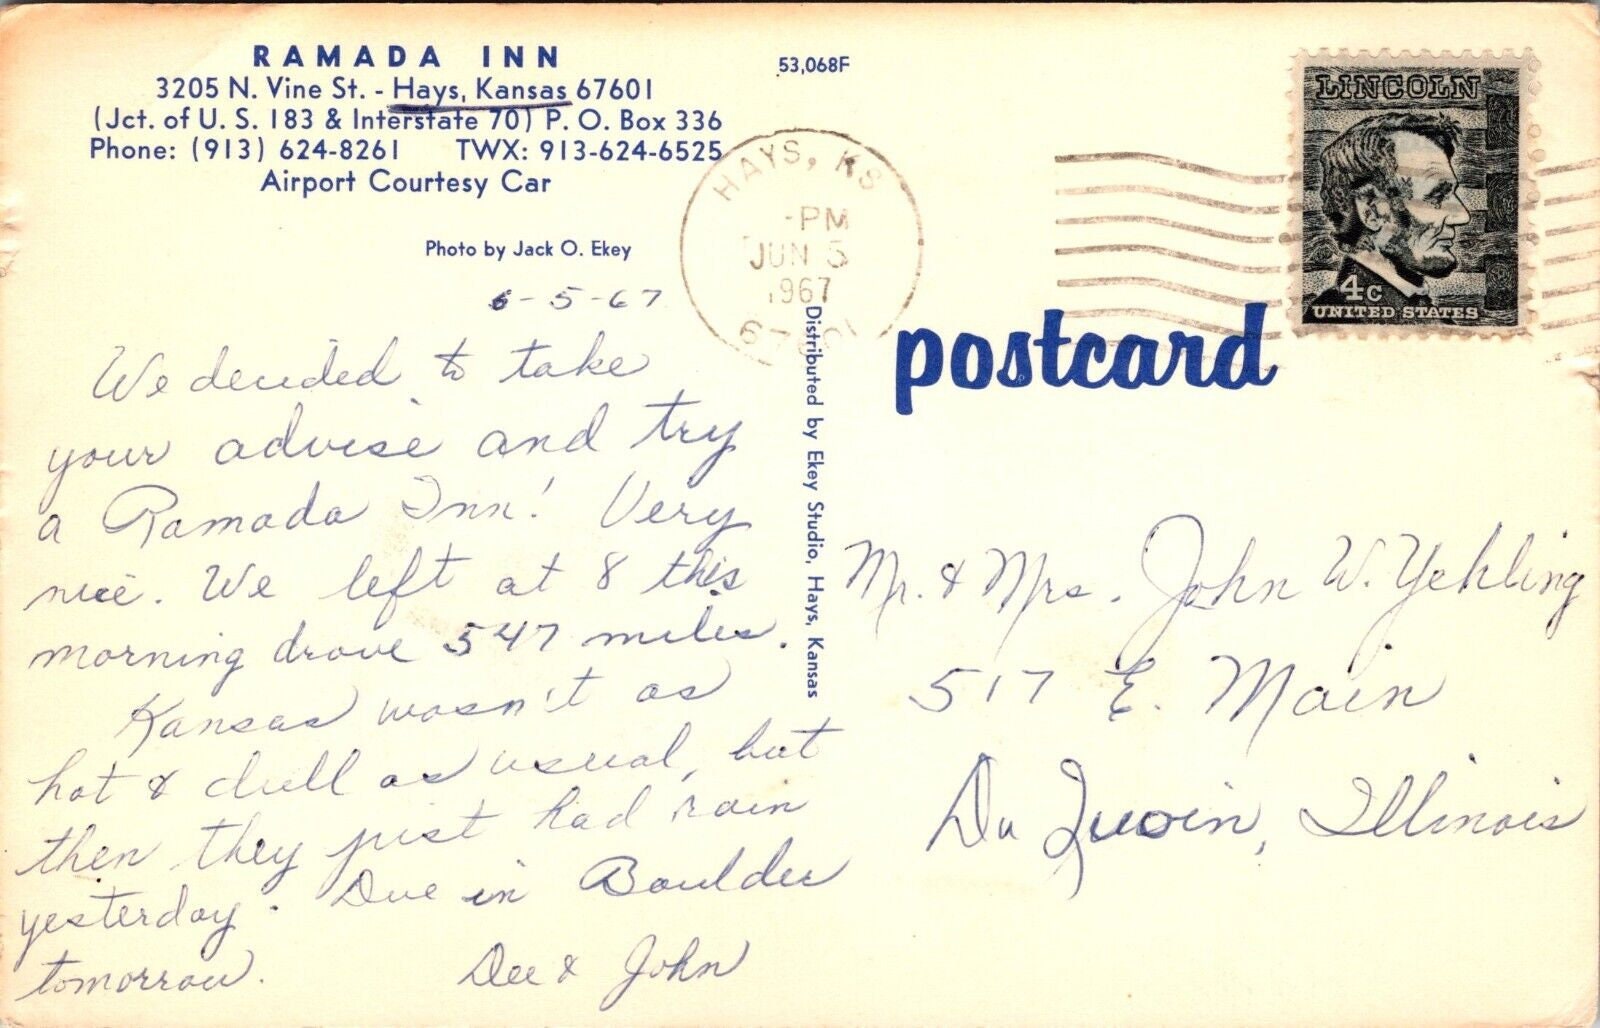 RAMADA INN
3205 N. Vine St. - Hays, Kansas 67601
(Jct. of U. S. 183 & Interstate 70) P. O. Box 336
Phone: (913) 624-8261 TWX: 913-624-6525
Airport Courtesy Car
Photo by Jack O. Ekey
53,068F
HAYS, KS
-PM
JUN 5
1967
LINCOLN
4c
UNITED STATES
postcard
Distributed by Ekey Studio, Hays, Kansas
6-5-67
We decided to take
your advise and try
a Ramada Inn! Very
nice. We left at 8 this
morning drove 547 miles.
Kansas wasn't as
hot & dull as usual, but
then they just had rain
yesterday. Due in Boulder
tomorrow. Dee & John
Mr. & Mrs. John W. Yehling
517 E. Main
Du Quoin, Illinois